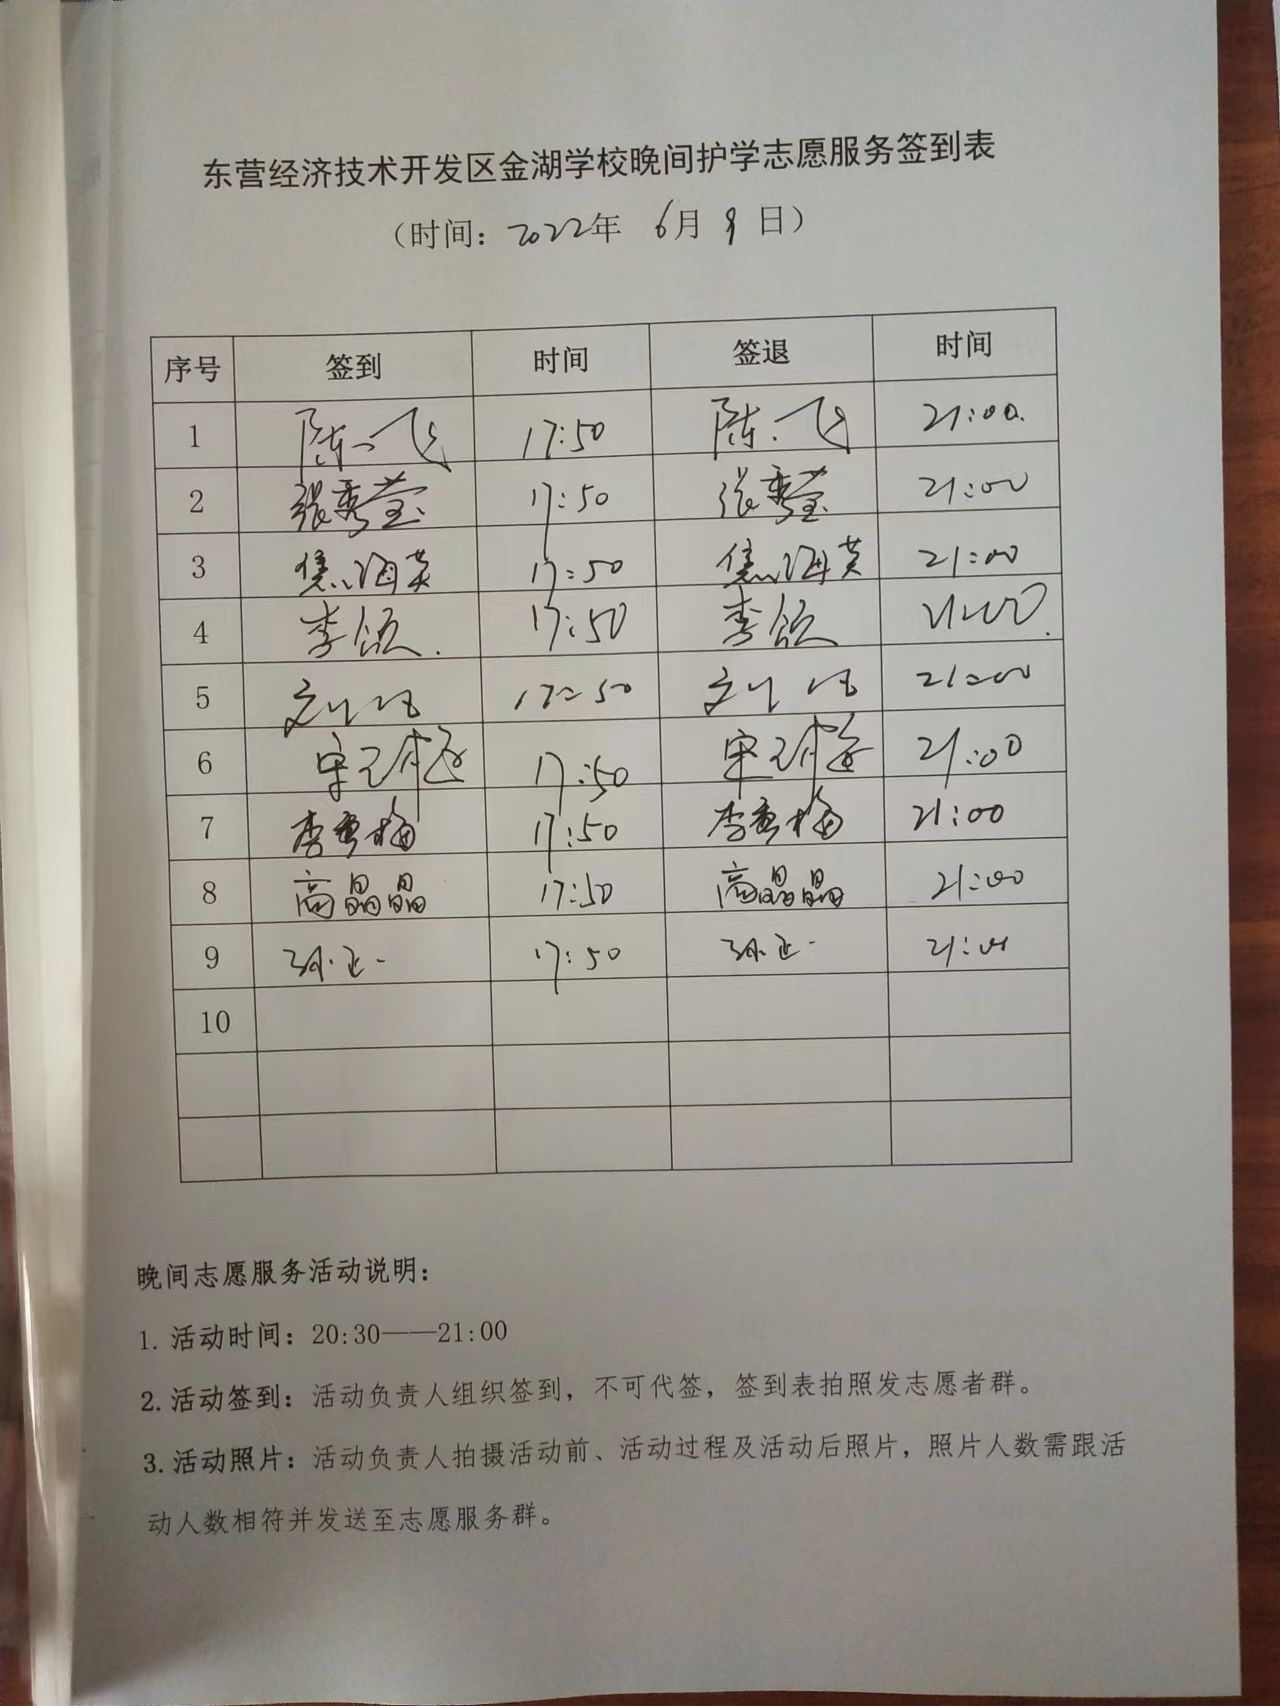 东营经济技术开发区金湖学校晚间护学志愿服务签到表
（时间：2022年 6月 9 日）
序号 签到 时间 签退 时间
1 陈飞 17:50 陈飞 21:00.
2 张秀莹 17:50 张秀莹 21:00
3 焦海英 17:50 焦海英 21:00
4 李颂 17:50 李颂 21:00
5 刘 17:50 刘 21:00
6 宋 17:50 宋 21:00
7 李秀梅 17:50 李秀梅 21:00
8 高晶晶 17:50 高晶晶 21:00
9 孙正一 17:50 孙正一 21:00
10
晚间志愿服务活动说明：
1. 活动时间：20:30——21:00
2. 活动签到：活动负责人组织签到，不可代签，签到表拍照发志愿者群。
3. 活动照片：活动负责人拍摄活动前、活动过程及活动后照片，照片人数需跟活
动人数相符并发送至志愿服务群。